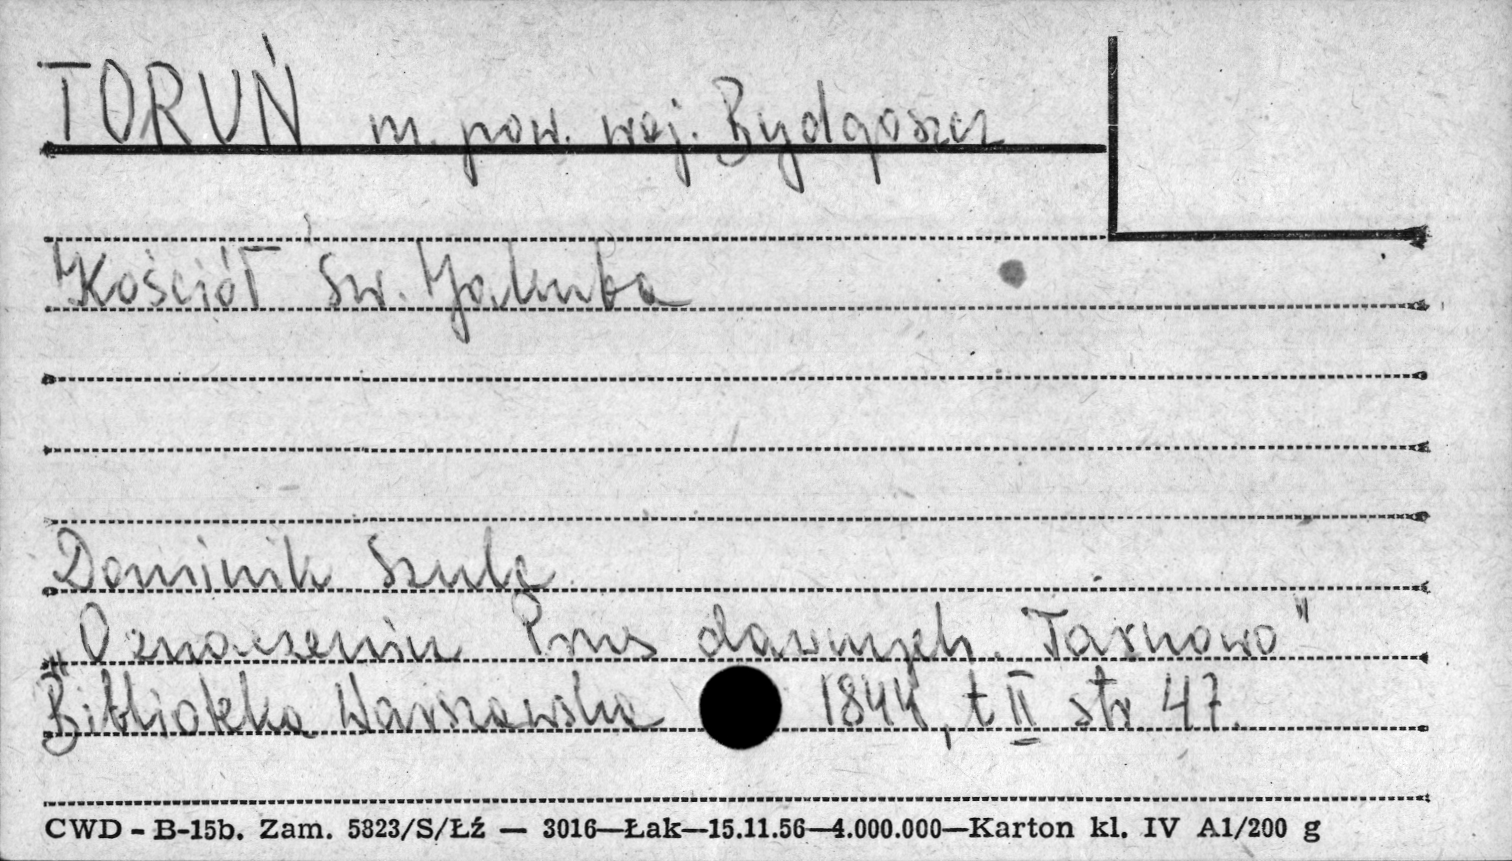 TORUŃ m. pow. woj. Bydgoszcz
Kościół Św. Jakuba
Dominik Szulc
„O znaczeniu Prus dawnych. Tarnowo"
Biblioteka Warszawska 1844, t II str. 47.
CWD - B-15b. Zam. 5823/S/Łź — 3016—Łak—15.11.56—4.000.000—Karton kl. IV A1/200 g